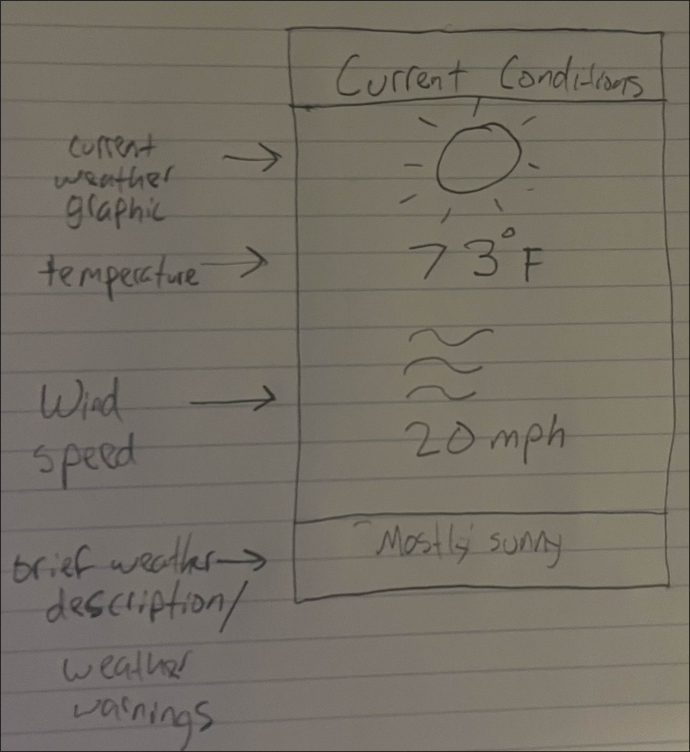 Current Conditions
current
weather
graphic
temperature
73°F
Wind
speed
20 mph
brief weather
description/
weather
warnings
Mostly sunny